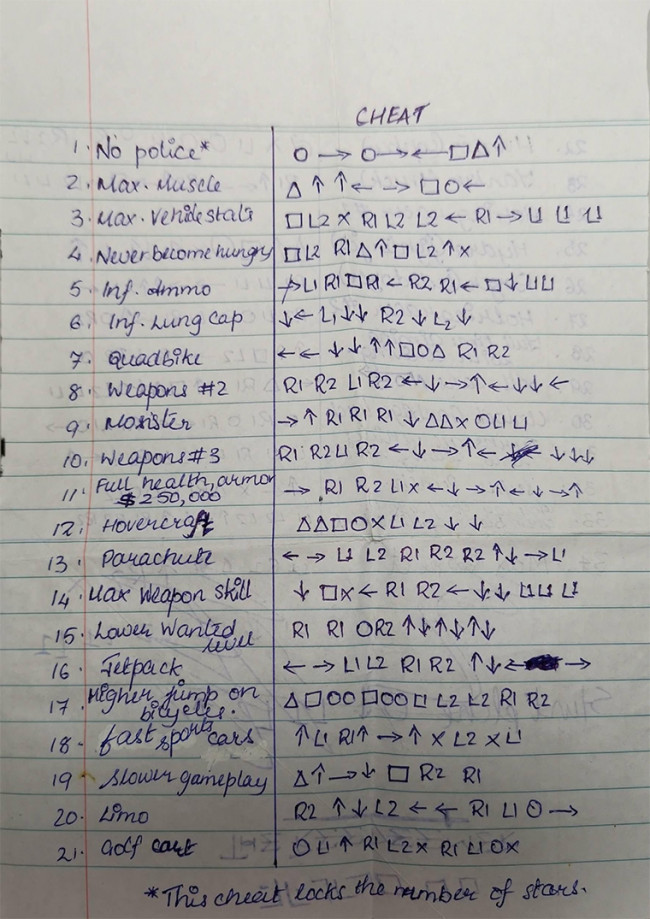 CHEAT
1. No police* O → O → ← □ △ ↑
2. Max. Muscle △ ↑ ↑ ← → □ O ←
3. Max. Vehicle stats □ L2 X R1 L2 L2 ← R1 → L1 L1 L1
4. Never become hungry □ L2 R1 △ ↑ □ L2 ↑ X
5. Inf. Ammo → L1 R1 □ R1 ← R2 R1 ← □ ↓ L1 L1
6. Inf. Lung cap ↓ ← L1 ↓ ↓ R2 ↓ L2 ↓
7. Quadbike ← ← ↓ ↓ ↑ ↑ □ O △ R1 R2
8. Weapons #2 R1 R2 L1 R2 ← ↓ → ↑ ← ↓ ↓ ←
9. Monster → ↑ R1 R1 R1 ↓ △ △ X O L1 L1
10. Weapons #3 R1 R2 L1 R2 ← ↓ → ↑ ← ↓ ↓ ↓
11. Full health, armor
$250,000 → R1 R2 L1 X ← ↓ → ↑ ← ↓ → ↑
12. Hovercraft △ △ □ O X L1 L2 ↓ ↓
13. Parachute ← → L1 L2 R1 R2 R2 ↑ ↓ → L1
14. Max Weapon skill ↓ □ X ← R1 R2 ← ↓ ↓ L1 L1 L1
15. Lower Wanted
level R1 R1 O R2 ↑ ↓ ↑ ↓ ↑ ↓
16. Jetpack ← → L1 L2 R1 R2 ↑ ↓ ← →
17. Higher jump on
bicycles. △ □ O O □ O O □ L2 L2 R1 R2
18. fast sports cars ↑ L1 R1 ↑ → ↑ X L2 X L1
19. Slower gameplay △ ↑ → ↓ □ R2 R1
20. Limo R2 ↑ ↓ L2 ← ← R1 L1 O →
21. Golf cart O L1 ↑ R1 L2 X R1 L1 O X
*This cheat locks the number of stars.